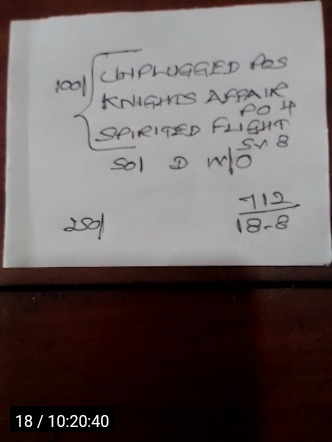 100/ UNPLUGGED POS
KNIGHTS AFFAIR
PO 4
SPIRITED FLIGHT
SM 8
50/ D W/O
250/
712
18-8
18 / 10:20:40